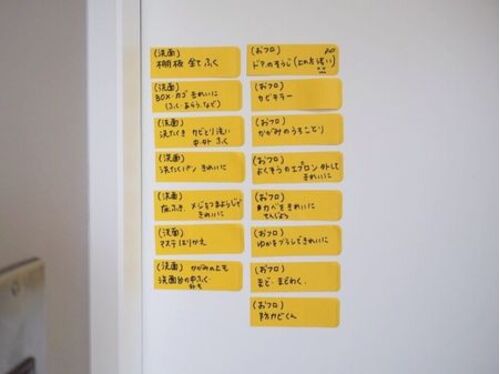 (洗面)
棚板 全て ふく
(洗面)
BOX・カゴ きれいに
(ふく・あらう など)
(洗面)
洗たくき カビとり洗い
中・外 ふく
(洗面)
洗たくパン きれいに
(洗面)
床ふき、メジをつまようじで
きれいに
(洗面)
マステ はりかえ
(洗面) かがみの上も
洗面台の中ふく
(おフロ)
ドアのそうじ(上の方
(おフロ)
カビキラー
(おフロ)
かがみのうろことり
(おフロ)
よくそうのエプロン外して
きれいに
(おフロ)
カベをきれいに
てんじょう
(おフロ)
ゆかをブラシできれいに
(おフロ)
まど・まどわく
(おフロ)
防カビくん